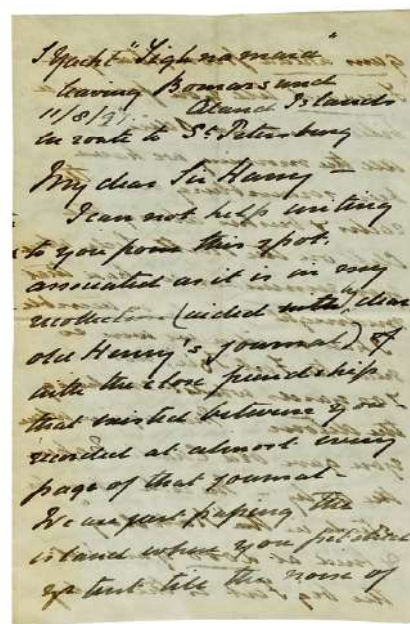 S. Yacht "Tighnamara"
leaving Bomarsund
Aland Islands
11/8/9
En route to St Petersburg
My dear Sir Harry —
I can not help writing
to you from this spot.
associated as it is in my
recollection (aided by dear
old Henry's journal) of
with the close friendship
that existed between you —
recorded at almost every
page of that journal —
We are just passing the
island where you pitched
yr tent till the noise of